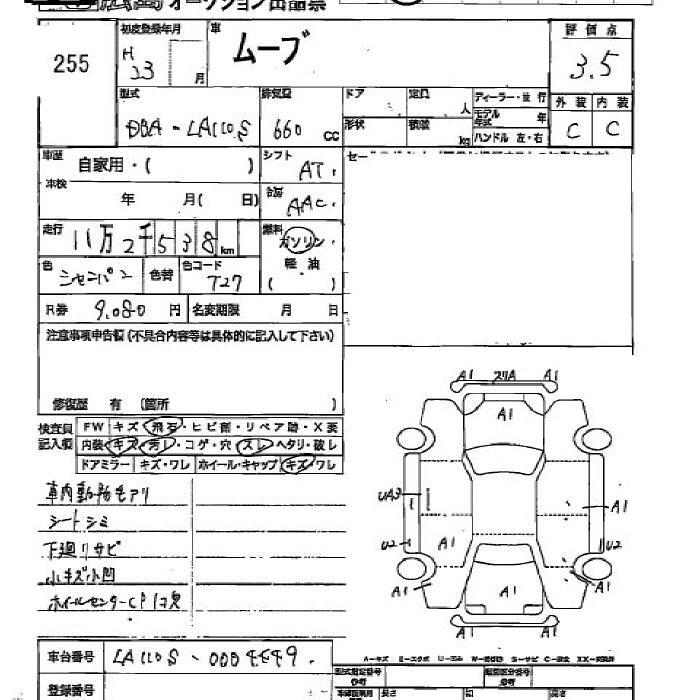 オークション出品票
255
初度登録年月
H 23 月
車
ムーブ
評価点
3.5
外装 内装
C C
型式
DBA-LA110S
排気量
660 cc
ドア
定員
人
ディーラー・並行
モデル年式 年
形状
積載
kg
ハンドル 左・右
車歴
自家用・( )
シフト
AT
車検
年 月( 日)
AAC
走行
11万2千538km
燃料
ガソリン・
軽油
( )
色
シャンパン
色替
色コード
T27
R券 9,080 円
名変期限 月 日
注意事項申告欄(不具合内容等は具体的に記入して下さい)
修復歴 有 (箇所 )
検査員記入欄
FW キズ・飛石・ヒビ割・リペア跡・X要
内装 キズ・汚レ・コゲ・穴・スレ・ヘタリ・破レ
ドアミラー キズ・ワレ ホイール・キャップ キズ・ワレ
車内動物毛アリ
シートシミ
下廻リサビ
小キズ小凹
ホイールセンターCP1欠
A1 A1
A1
UA3
A1
U2
A1
U2
A1 A1 A1
A1 A1
車台番号 LA110S-0004449
登録番号
型式指定番号
参考
類別区分番号
参考
長さ
幅
高さ